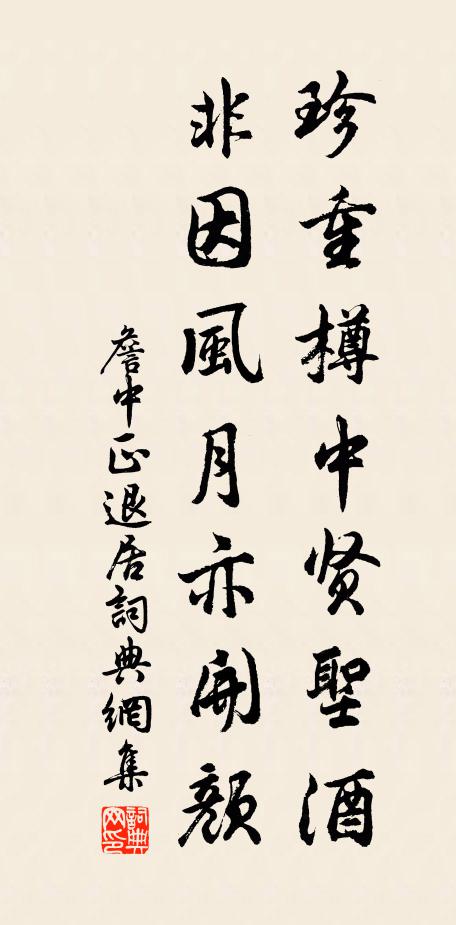 珍重樽中贤聖酒
非因風月亦開顔
詹中正退居詞典網集
詞典網印